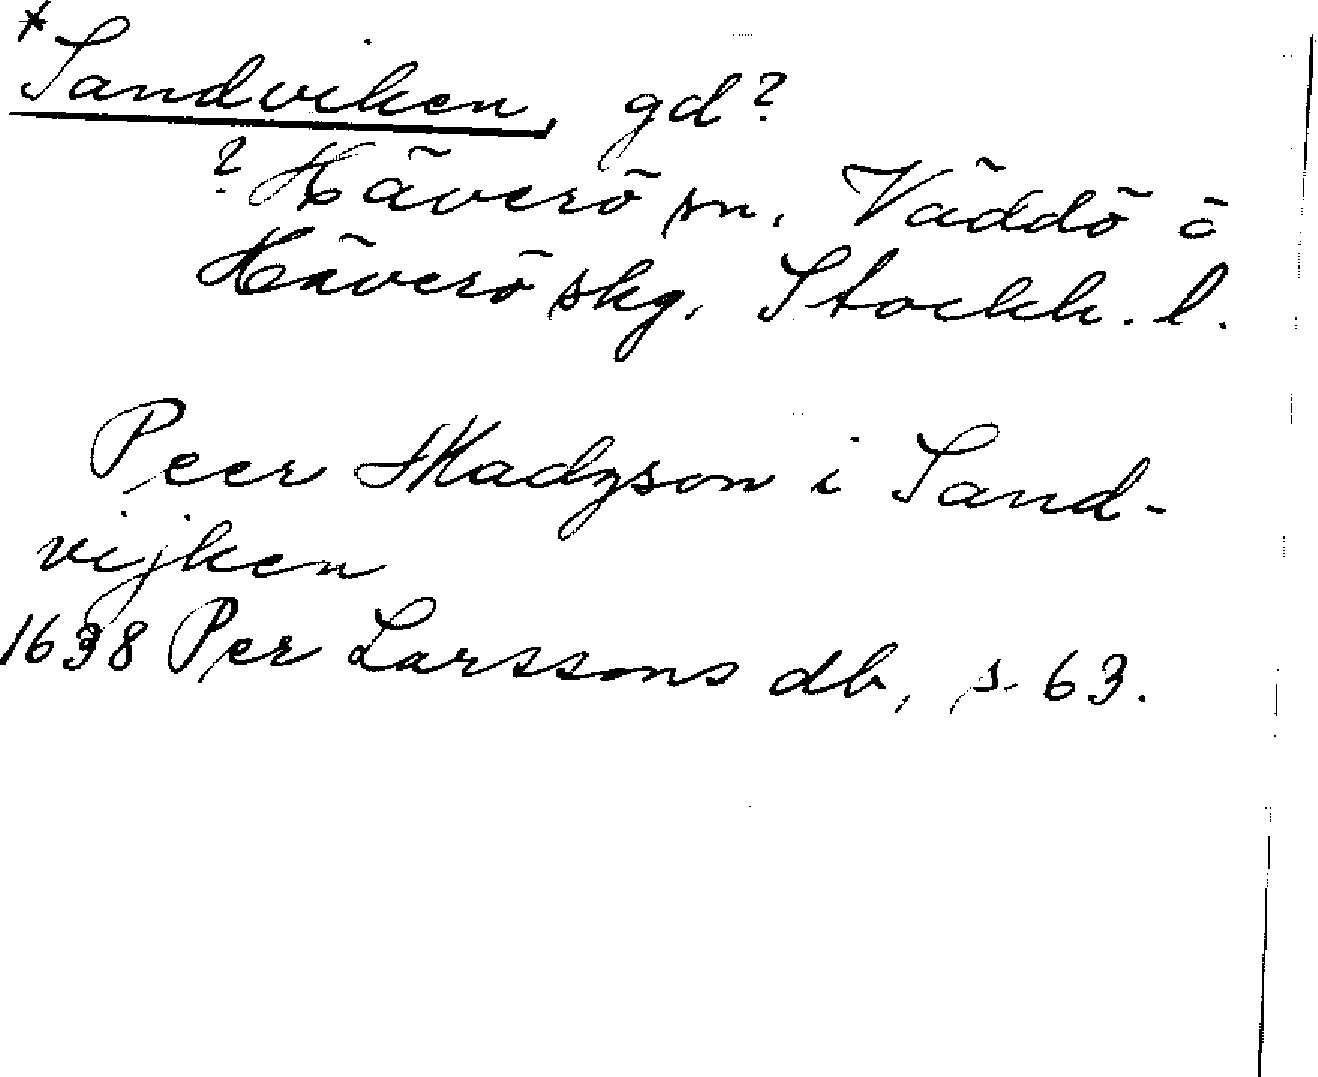 *Sandviken, gd?
? Häverö sn. Väddö o
Häverö skg. Stockh. l.
Peer Madzson i Sand-
vijken
1638 Per Larssons db, s. 63.